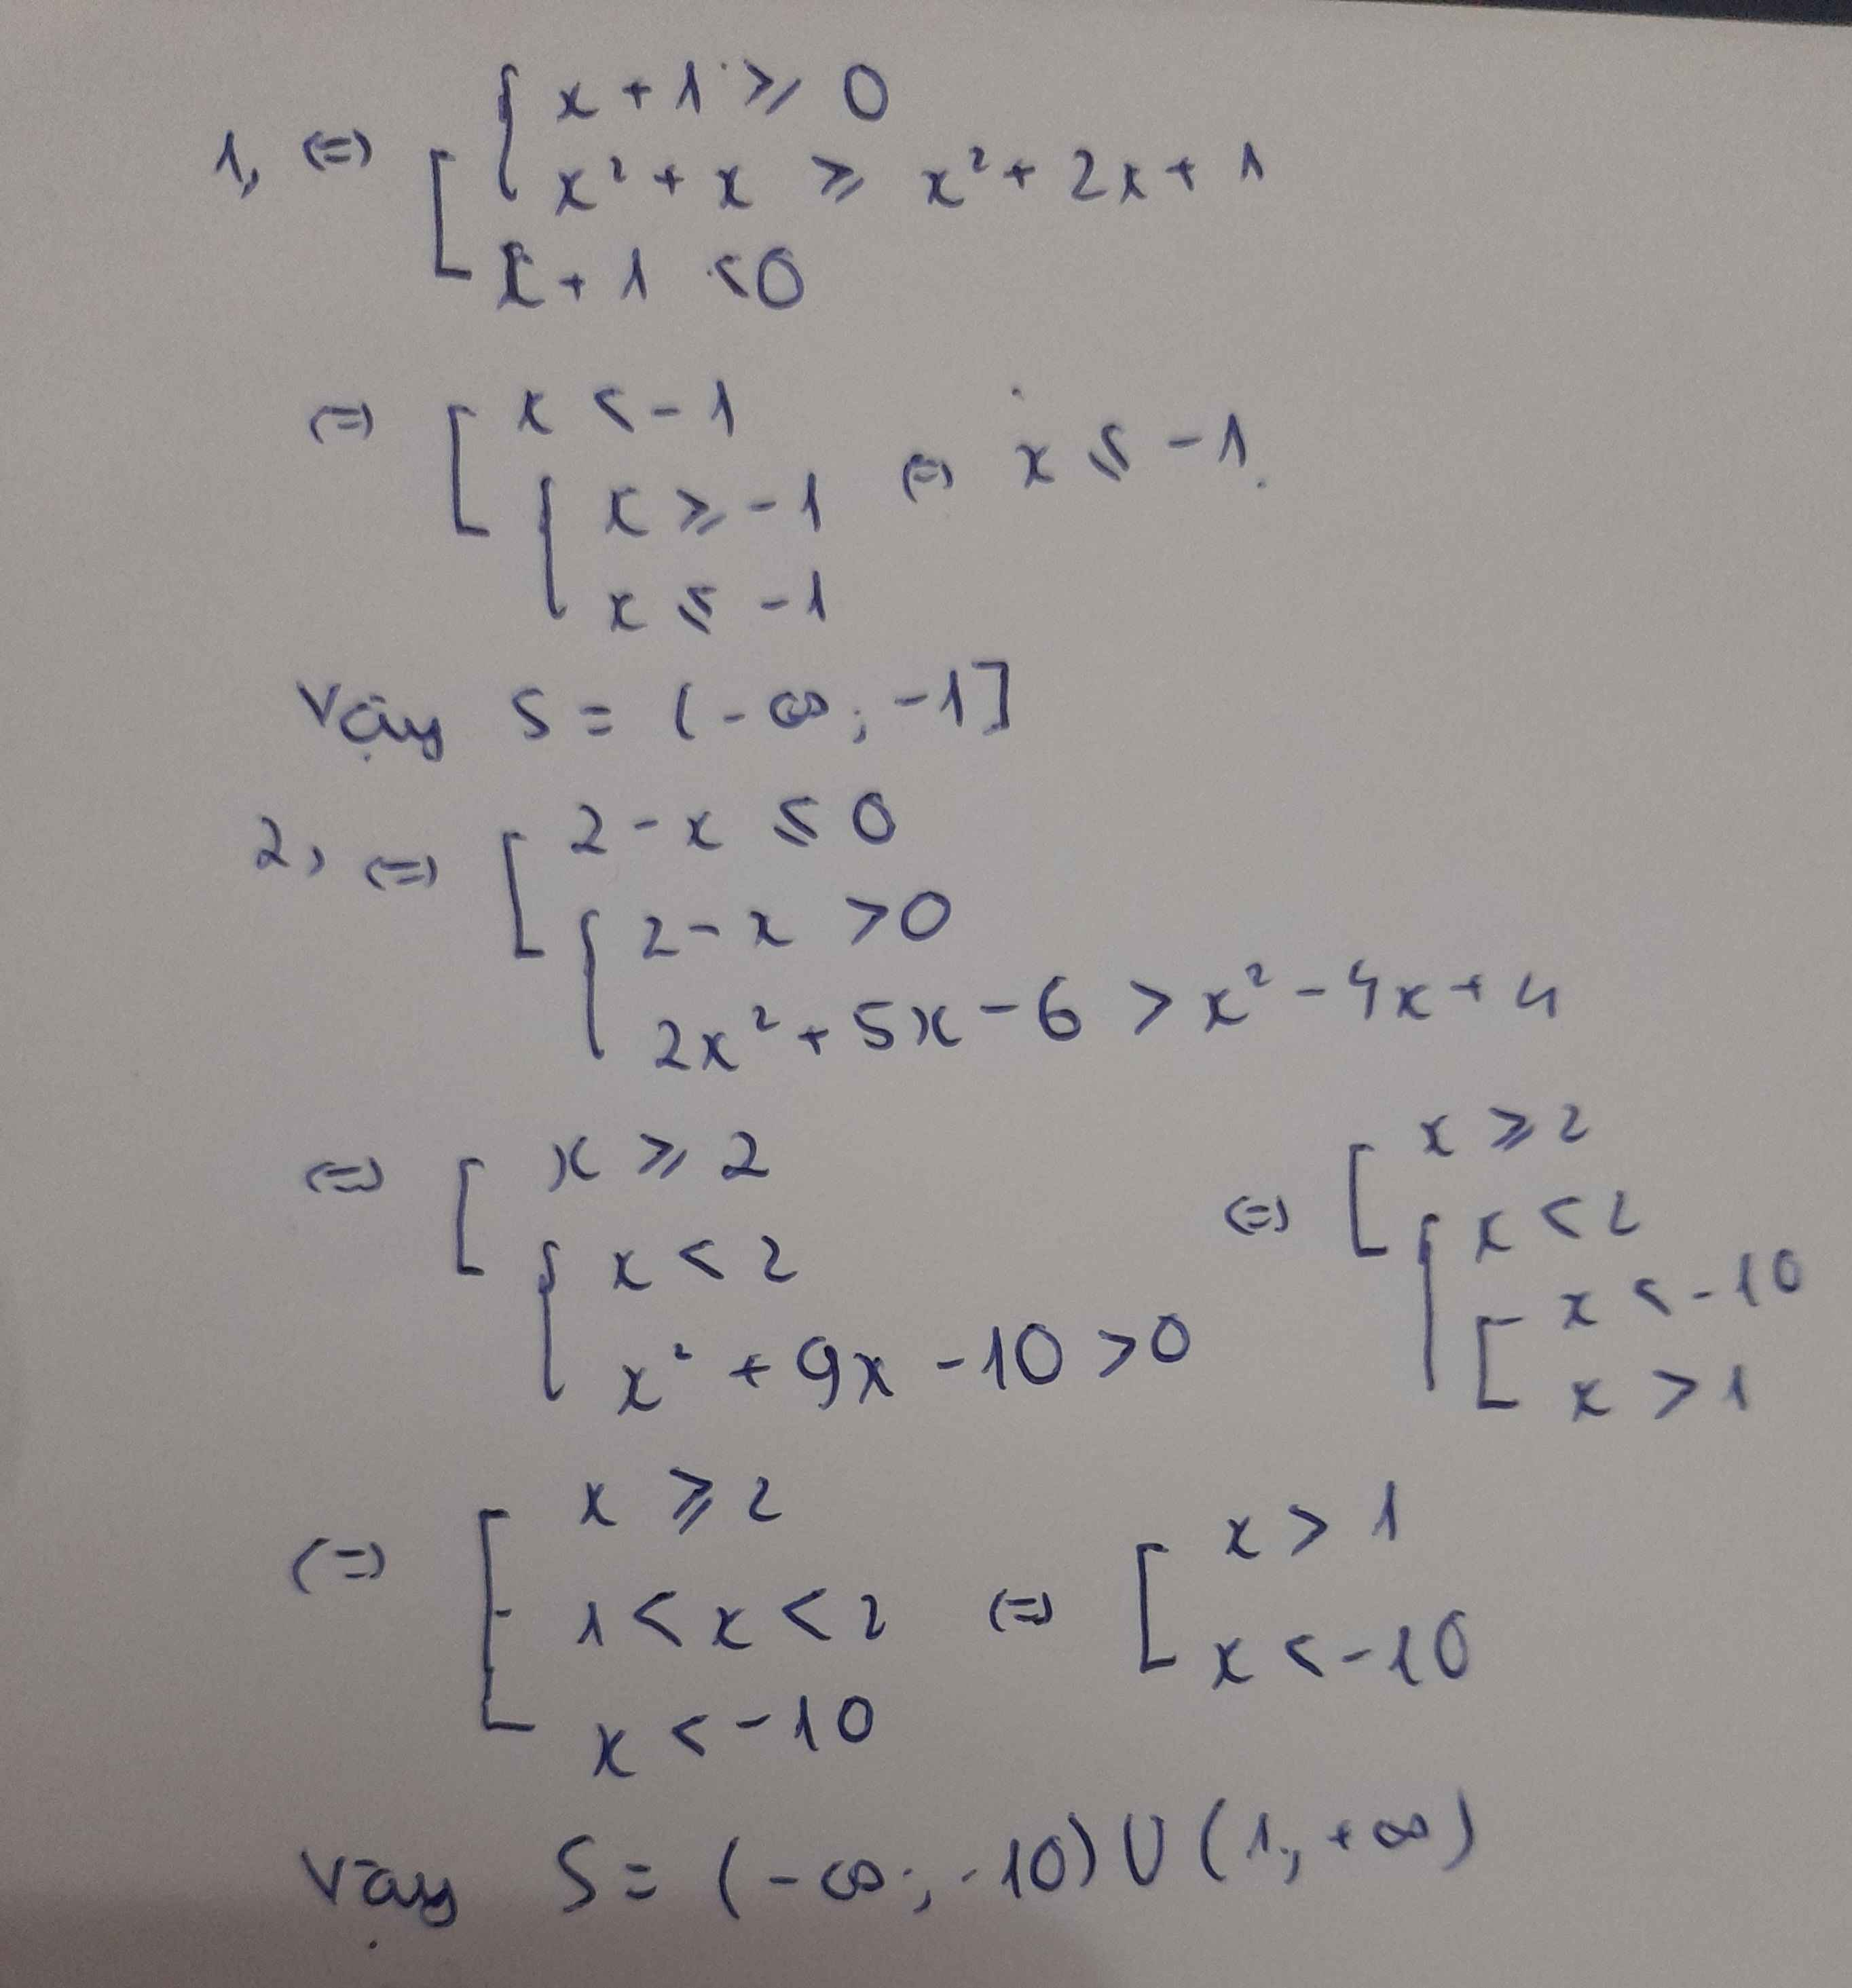 1, (=) [ { x + 1 ≥ 0
x² + x ≥ x² + 2x + 1
x + 1 < 0
(=) [ x < -1
{ x ≥ -1 (=) x ≤ -1.
x ≤ -1
Vậy S = (-∞; -1]
2, (=) [ 2 - x ≤ 0
{ 2 - x > 0
2x² + 5x - 6 > x² - 4x + 4
(=) [ x ≥ 2 (=) [ x ≥ 2
{ x < 2 { x < 2
x² + 9x - 10 > 0 [ x < -10
x > 1
(=) [ x ≥ 2
1 < x < 2 (=) [ x > 1
x < -10 x < -10
Vậy S = (-∞; -10) ∪ (1; +∞)